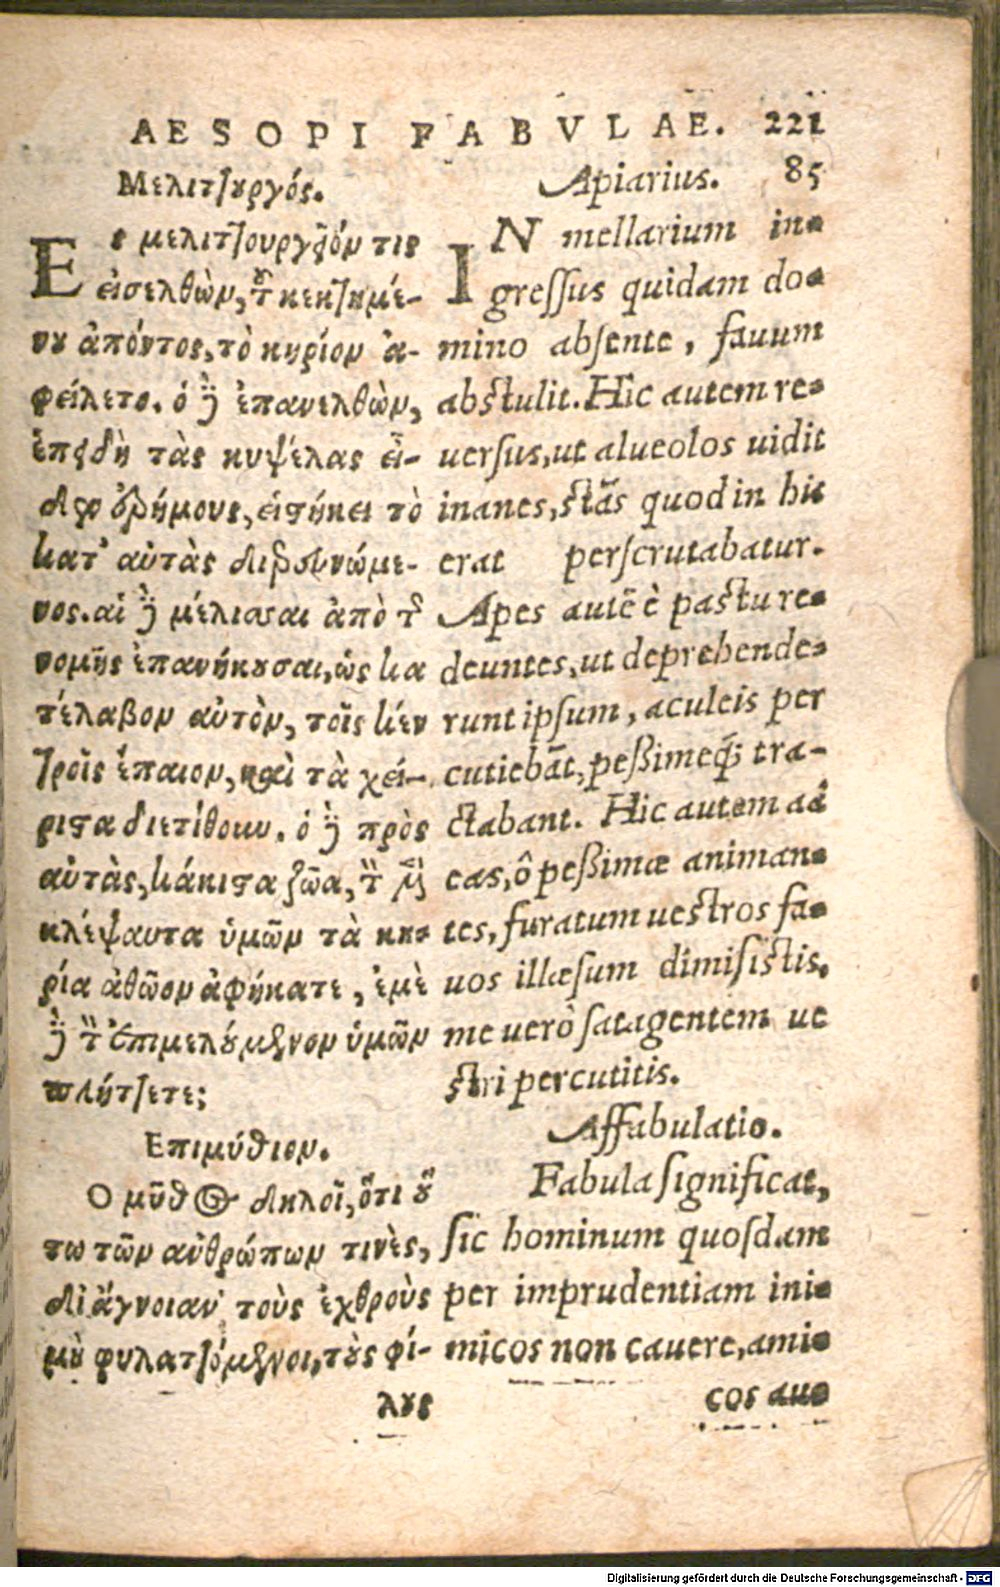 AESOPI FABVLAE. 221
Μελιτζουργός.
Εις μελιτζουργεῖόν τις
εἰσελθὼν, τοῦ κεκτημέ-
νου ἀπόντος, τὸ κηρίον ἀ-
φείλετο. ὁ δὲ ἐπανελθὼν,
ἐπειδὴ τὰς κυψέλας εἶ-
δεν ἐρήμους, εἱστήκει τὸ
κατ' αὐτὰς διερευνώμε-
νος. αἱ δὲ μέλισσαι ἀπὸ τῆς
νομῆς ἐπανήκουσαι, ὡς κα
τέλαβον αὐτὸν, τοῖς κέν
τροῖς ἔπαιον, καὶ τὰ χεί-
ριστα διετίθουν. ὁ δὲ πρὸς
αὐτὰς, κάκιστα ζῶα, τὸν μὲν
κλέψαντα ὑμῶν τὰ κη-
ρία ἀθῶον ἀφήκατε, ἐμὲ
δὲ τὸν ἐπιμελούμενον ὑμῶν
πλήττετε;
Επιμύθιον.
Ο μῦθος δηλοῖ, ὅτι οὕ
τω τῶν ἀνθρώπων τινὲς,
δι' ἄγνοιαν τοὺς ἐχθροὺς
μὴ φυλαττόμενοι, τοὺς φί-
λους
Apiarius. 85
IN mellarium in-
gressus quidam do-
mino absente, fauum
abstulit. Hic autem re-
uersus, ut alueolos uidit
inanes, stãs quod in his
erat perscrutabatur.
Apes autẽ è pastu re-
deuntes, ut deprehende-
runt ipsum, aculeis per
cutiebãt, peßimeq́; tra-
ctabant. Hic autem ad
eas, ô peßimæ animan-
tes, furatum uestros fa-
uos illæsum dimisistis,
me uerò satagentem ue
stri percutitis.
Affabulatio.
Fabula significat,
sic hominum quosdam
per imprudentiam ini-
micos non cauere, ami-
cos au-
Digitalisierung gefördert durch die Deutsche Forschungsgemeinschaft - DFG